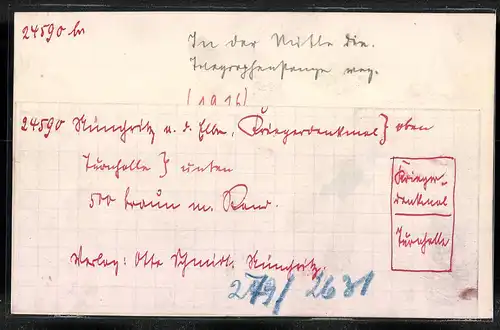 24590 br
In der Mitte die
Telegraphenstange weg.
(1916)
24590 Nünchritz a. d. Elbe, Kriegerdenkmal } oben
Turnhalle } unten
500 braun m. Rand.
Krieger-
denkmal
Turnhalle
Verlag: Otto Schmidt, Nünchritz.
279/2631